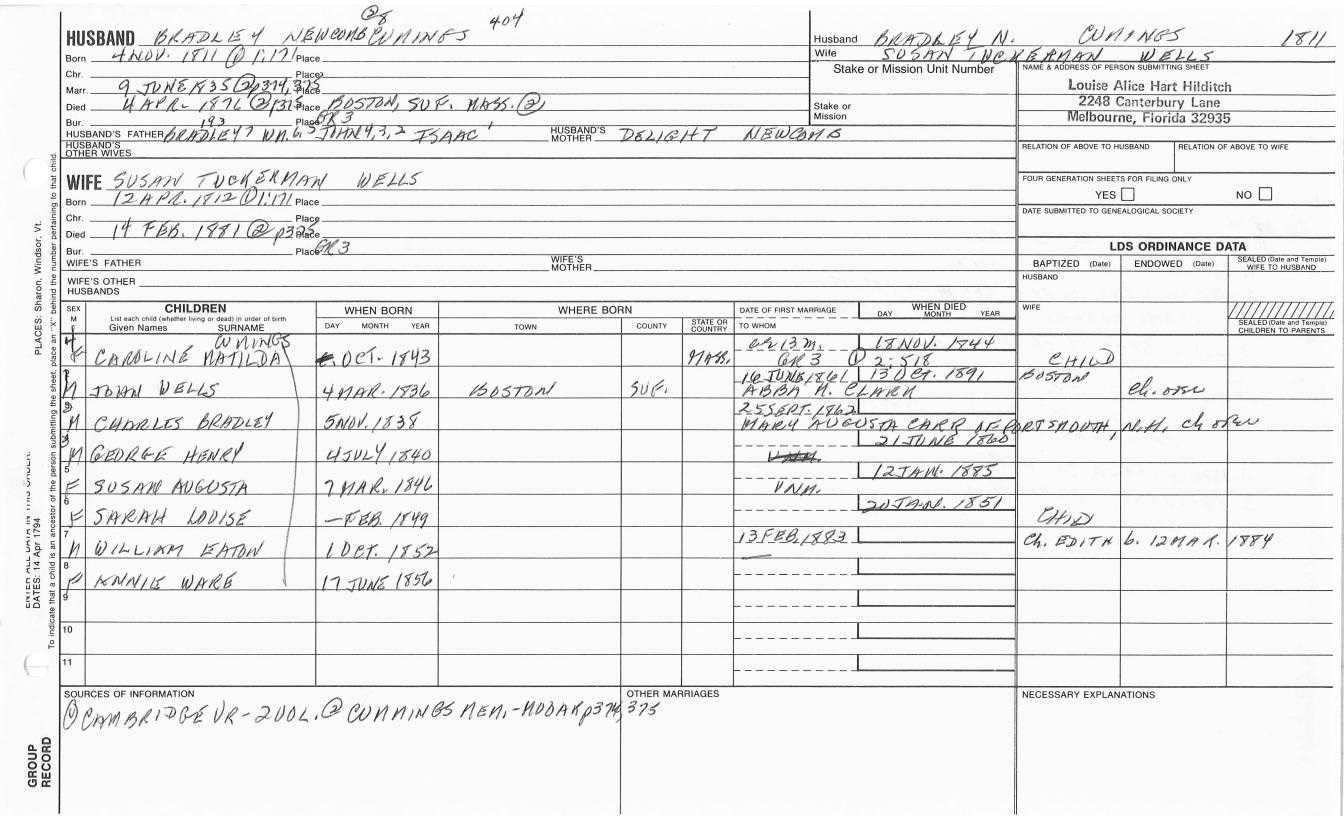 404
HUSBAND BRADLEY NEWCOMB CUMINGS
Born 4 NOV. 1811 ① 1:171 Place
Chr. Place
Marr. 9 JUNE 1835 ② p374, 375 Place
Died 4 APR. 1876 ② p375 Place BOSTON, SUF. MASS. ②
Bur. 193 Place GR 3
HUSBAND'S FATHER BRADLEY 7 WM. 6, 5 JOHN 4, 3, 2 ISAAC 1 HUSBAND'S MOTHER DELIGHT NEWCOMB
HUSBAND'S OTHER WIVES
Husband BRADLEY N. CUMINGS 1811
Wife SUSAN TUCKERMAN WELLS
Stake or Mission Unit Number
Stake or Mission
NAME & ADDRESS OF PERSON SUBMITTING SHEET
Louise Alice Hart Hilditch
2248 Canterbury Lane
Melbourne, Florida 32935
RELATION OF ABOVE TO HUSBAND RELATION OF ABOVE TO WIFE
FOUR GENERATION SHEETS FOR FILING ONLY
YES NO
DATE SUBMITTED TO GENEALOGICAL SOCIETY
WIFE SUSAN TUCKERMAN WELLS
Born 12 APR. 1812 ① 1:171 Place
Chr. Place
Died 14 FEB. 1881 ② p375 Place
Bur. Place GR 3
WIFE'S FATHER WIFE'S MOTHER
WIFE'S OTHER HUSBANDS
LDS ORDINANCE DATA
BAPTIZED (Date) ENDOWED (Date) SEALED (Date and Temple) WIFE TO HUSBAND
HUSBAND
WIFE
SEALED (Date and Temple) CHILDREN TO PARENTS
SEX M F
CHILDREN
List each child (whether living or dead) in order of birth
Given Names SURNAME
WHEN BORN
DAY MONTH YEAR
WHERE BORN
TOWN COUNTY STATE OR COUNTRY
DATE OF FIRST MARRIAGE
TO WHOM
WHEN DIED
DAY MONTH YEAR
CUMINGS
4 F CAROLINE MATILDA OCT. 1843 MASS. 13 m. GR 3 ① 2:518 18 NOV. 1844 CHILD
M JOHN WELLS 4 MAR. 1836 BOSTON SUF. 16 JUNE 1861 ABBA M. CLARK 13 OCT. 1891 BOSTON Ch. one
M CHARLES BRADLEY 5 NOV. 1838 25 SEPT. 1862 MARY AUGUSTA CARR OF PORTSMOUTH, N.H. Ch one
M GEORGE HENRY 4 JULY 1840 21 JUNE 1860
5 F SUSAN AUGUSTA 7 MAR. 1846 UNM. 12 JAN. 1885
6 F SARAH LOUISE — FEB. 1849 20 JAN. 1851 CHILD
7 M WILLIAM EATON 1 OCT. 1852 13 FEB. 1883 Ch. EDITH b. 12 MAR. 1884
8 F ANNIE WARE 17 JUNE 1856
9
10
11
SOURCES OF INFORMATION
① CAMBRIDGE VR - 2 VOL. ② CUMMINGS MEM. - MOOAR p374, 375
OTHER MARRIAGES
NECESSARY EXPLANATIONS
PLACES: Sharon, Windsor, Vt.
DATES: 14 Apr 1794
To indicate that a child is an ancestor of the person submitting the sheet, place an "X" behind the number pertaining to that child.
GROUP RECORD